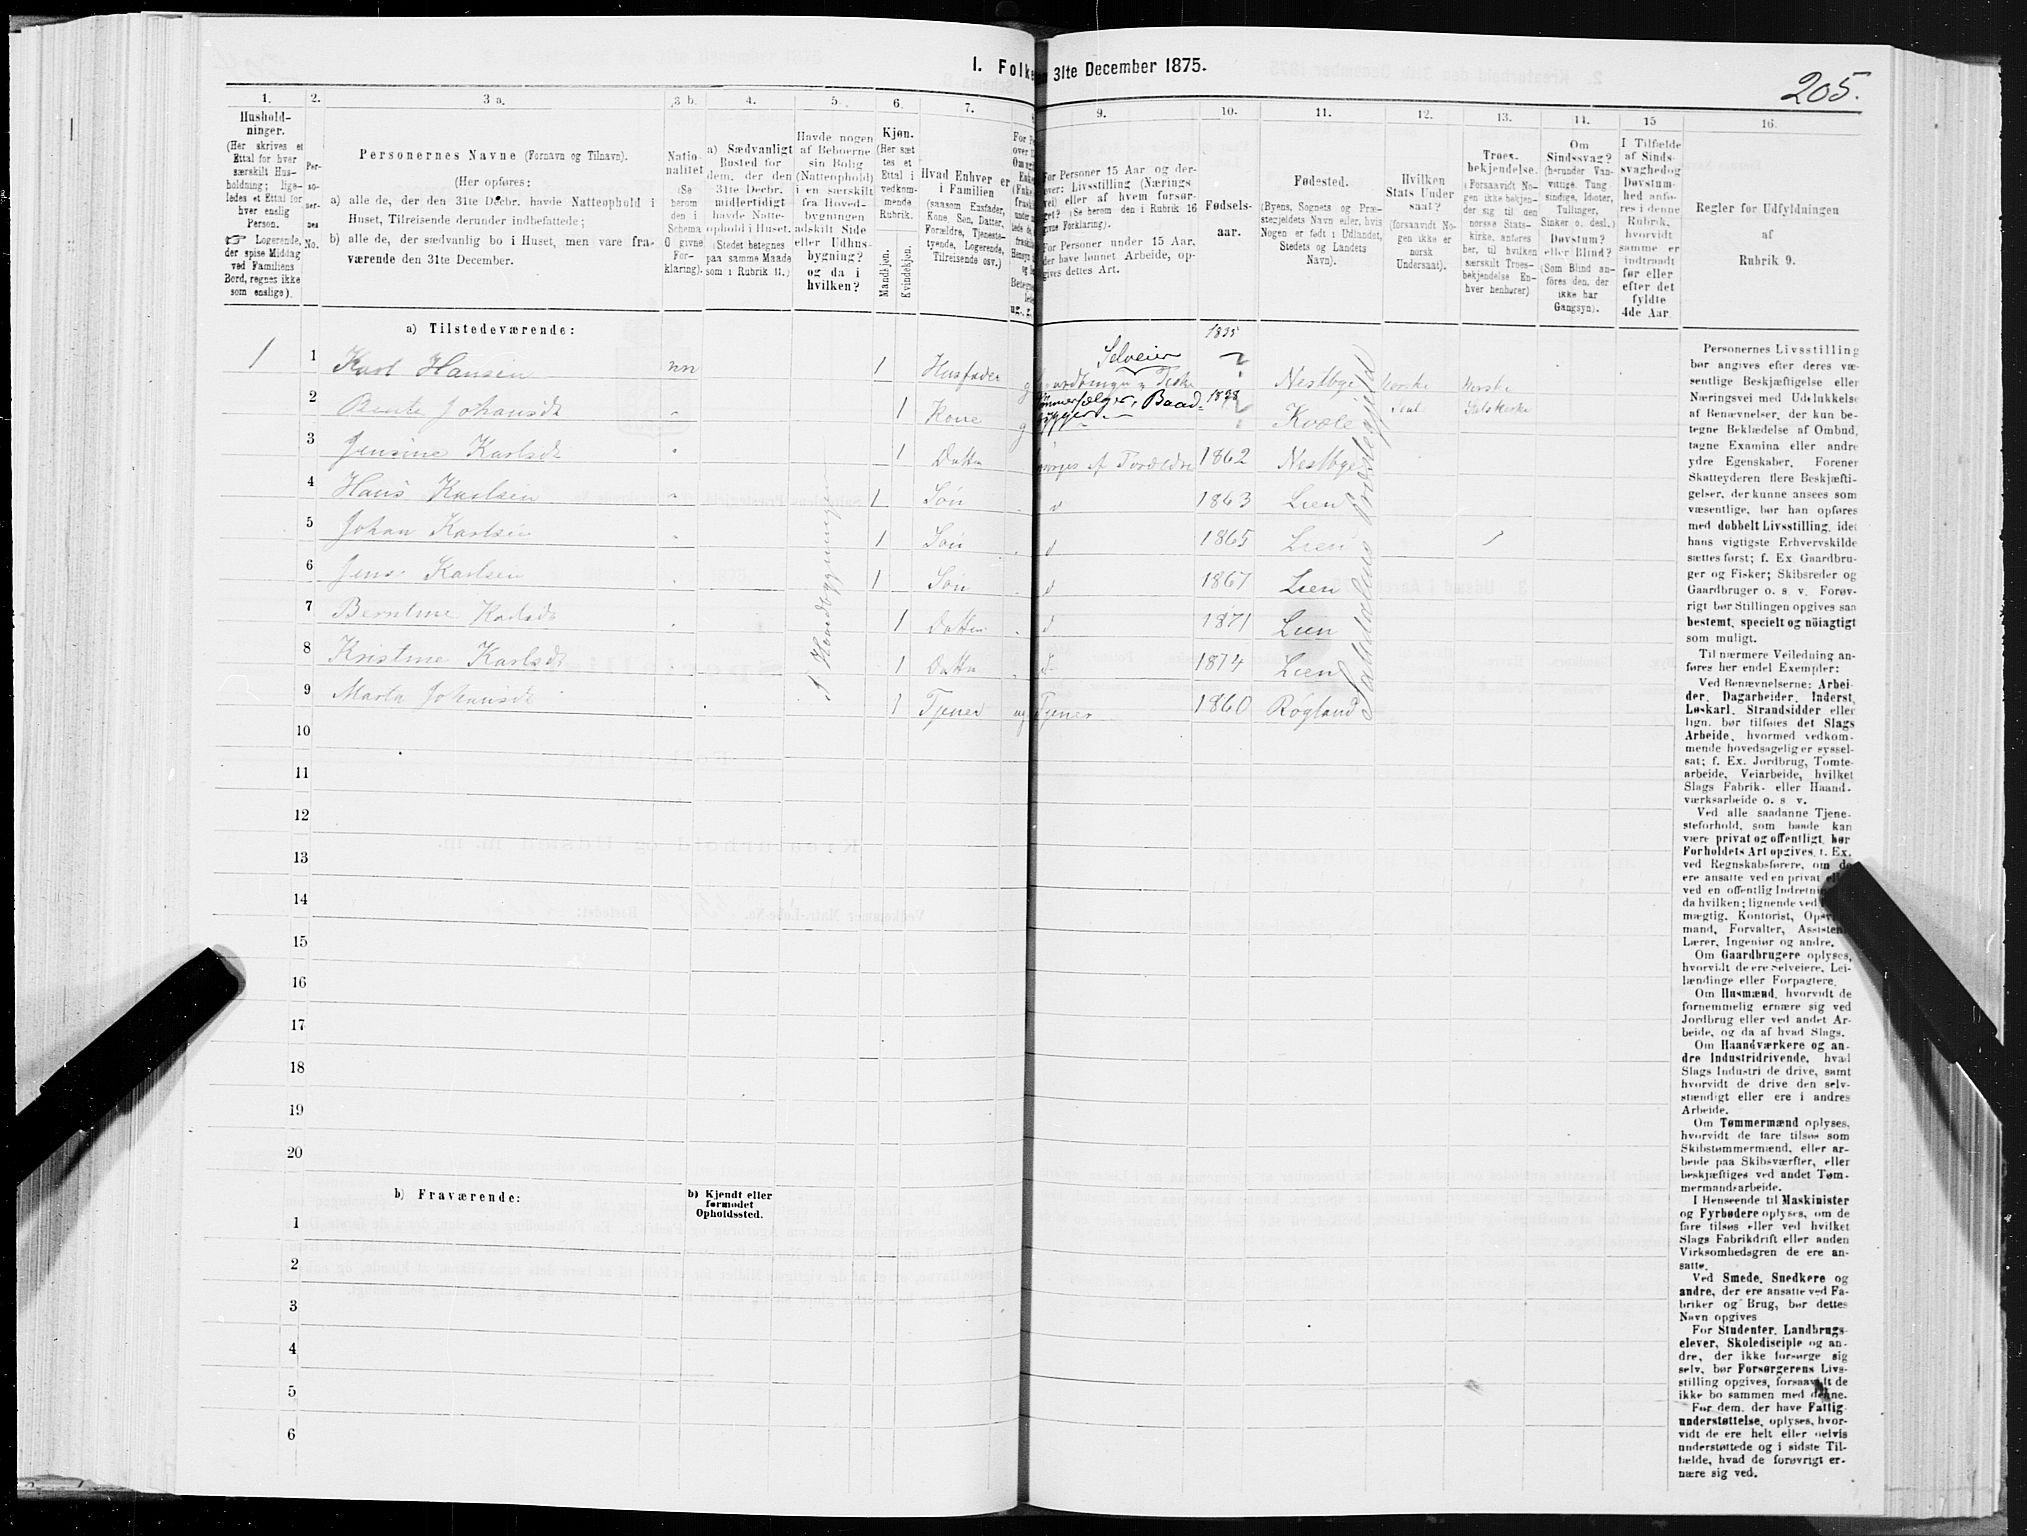 I. Folke
en 31te December 1875.
205.
1.
2.
3 a.
3 b.
4.
5.
6.
7.
9.
10.
11.
12.
13.
14.
15
16.
Hushold-
ninger.
(Her skrives et
Ettal for hver
særskilt Hus-
holdning; lige-
ledes et Ettal for
hver enslig
Person.
☞ Logerende,
der spise Middag
ved Familiens
Bord, regnes ikke
som enslige).
Per-
so-
ner-
nes
No.
Personernes Navne (Fornavn og Tilnavn).
(Her opføres:
a) alle de, der den 31te Decbr. havde Natteophold i
Huset, Tilreisende derunder indbefattede;
b) alle de, der sædvanlig bo i Huset, men vare fra-
værende den 31te December.
Natio-
nalitet
(Se
herom
den i
Schema
O givne
For-
klaring).
a) Sædvanligt
Bosted for
dem, der den
31te Decbr.
midlertidigt
havde Natte-
ophold i Huset.
(Stedet betegnes
paa samme Maade
som i Rubrik 11.)
Havde nogen
af Beboerne
sin Bolig
(Natteophold)
i en særskilt
fra Hoved-
bygningen
adskilt Side
eller Udhus-
bygning?
og da i
hvilken?
Kjøn.
(Her sæt
tes et
Ettal i
vedkom-
mende
Rubrik.
Mandkjøn.
Kvindekjøn.
Hvad Enhver er
i Familien
(saasom Husfader,
Kone, Søn, Datter,
Forældre, Tjeneste-
tyende, Logerende,
Tilreisende osv.)
For Personer 15 Aar og der-
over: Livsstilling (Nærings
vei) eller af hvem forsør-
get? (Se herom den i Rubrik 16
givne Forklaring).
For Personer under 15 Aar,
der have lønnet Arbeide, op-
gives dettes Art.
Fødsels-
aar.
Fødested.
(Byens, Sognets og Præ-
stegjeldets Navn eller, hvis
Nogen er født i Udlandet,
Stedets og Landets
Navn).
Hvilken
Stats Under
saat?
(forsaavidt No-
gen ikke er
norsk
Undersaat).
Troes-
bekjendelse.
(Forsaavidt No-
gen ikke bekjen-
der sig til den
norske Stats-
kirke, anføres
her, til hvilken
særskilt Troes-
bekjendelse En-
hver henhører)
Om
Sindssvag?
(herunder Van-
vittige, Tung-
sindige, Idioter,
Tullinger,
Sinker o. desl.)
Døvstum?
eller Blind?
(Som Blind an-
føres den, der
ikke har
Gangsyn).
I Tilfælde
af Sinds-
svaghed og
Døvstum-
hed anfø-
res i denne
Rubrik,
hvorvidt
samme er
indtraadt
før eller
efter det
fyldte
4de Aar.
Regler for Udfyldningen
af
Rubrik 9.
a) Tilstedeværende:
1 1 Karl Hansen nn 1 Husfader Selveier 1835 Nestbye Norske Norske
2 Bente Johansdt 1 Kone 1838 Kvæle
3 Jensine Karlsdt 1 Datter 1862 Nestbye
4 Hans Karlsen 1 Søn 1863 Lien
5 Johan Karlsen 1 Søn 1865 Lien
6 Jens Karlsen 1 Søn 1867 Lien
7 Berntine Karlsdt 1 Datter 1871 Lien
8 Kristine Karlsdt 1 Datter 1874 Lien
9 Marta Johansdt 1 Tjener ug Tjener 1860 Rogland
I Hovedbygningen
Saltdalens Præstegjeld
10
11
12
13
14
15
16
17
18
19
20
b) Fraværende:
b) Kjendt eller
formodet
Opholdssted.
1
2
3
4
5
6
Personernes Livsstilling
bør angives efter deres væ-
sentlige Beskjæftigelse eller
Næringsvei med Udelukkelse
af Benævnelser, der kun be-
tegne Beklædelse af Ombud,
tagne Examina eller andre
ydre Egenskaber. Forener
Skatteyderen flere Beskjæfti-
gelser, der kunne ansees som
væsentlige, bør han opføres
med dobbelt Livsstilling, idet
hans vigtigste Erhvervskilde
sættes først; f. Ex. Gaardbru-
ger og Fisker; Skibsreder og
Gaardbruger o. s. v. Forøv-
rigt bør Stillingen opgives saa
bestemt, specielt og nöiagtigt
som muligt.
Til nærmere Veiledning an-
føres her endel Exempler:
Ved Benævnelserne: Arbei-
der, Dagarbeider, Inderst,
Løskarl, Strandsidder eller
lign. bør tilføies det Slags
Arbeide, hvormed vedkom-
mende hovedsagelig er syssel-
sat; f. Ex. Jordbrug, Tomte-
arbeide, Veiarbeide, hvilket
Slags Fabrik- eller Haand-
værksarbeide o. s. v.
Ved alle saadanne Tjene-
steforhold, som baade kan
være privat og offentligt, bør
Forholdets Art opgives, f. Ex.
ved Regnskabsførere, om de
ere ansatte ved en privat
ved en offentlig Indretning
da hvilken; lignende ved
mægtig, Kontorist, Opsyns-
mand, Forvalter, Assistent,
Lærer, Ingeniør og andre.
Om Gaardbrugere oplyses,
hvorvidt de ere Selveiere, Lei-
lændinge eller Forpagtere.
Om Husmænd, hvorvidt de
fornemmelig ernære sig ved
Jordbrug eller ved andet Ar-
beide, og da af hvad Slags.
Om Haandværkere og an-
dre Industridrivende, hvad
Slags Industri de drive, samt
hvorvidt de drive den selv-
stændigt eller ere i andres
Arbeide.
Om Tømmermænd oplyses,
hvorvidt de fare tilsøs som
Skibstømmermænd, eller ar-
beide paa Skibsværfter, eller
beskjæftiges ved andet Tøm-
mermandsarbeide.
I Henseende til Maskinister
og Fyrbødere oplyses, om de
fare tilsøs eller ved hvilket
Slags Fabrikdrift eller anden
Virksomhedsgren de ere an-
satte.
Ved Smede, Snedkere og
andre, der ere ansatte ved Fa-
briker og Brug, bør dettes
Navn opgives
For Studenter, Landbrugs-
elever, Skoledisciple og an-
dre, der ikke forsørge sig
selv, bør Forsørgerens Livs-
stilling opgives, forsaavidt de
ikke bo sammen med denne.
For dem, der have Fattig-
understøttelse, oplyses, hvor-
vidt de ere helt eller delvis
understøttede og i sidste Til-
fælde, hvad de forøvrigt er-
nære sig ved.